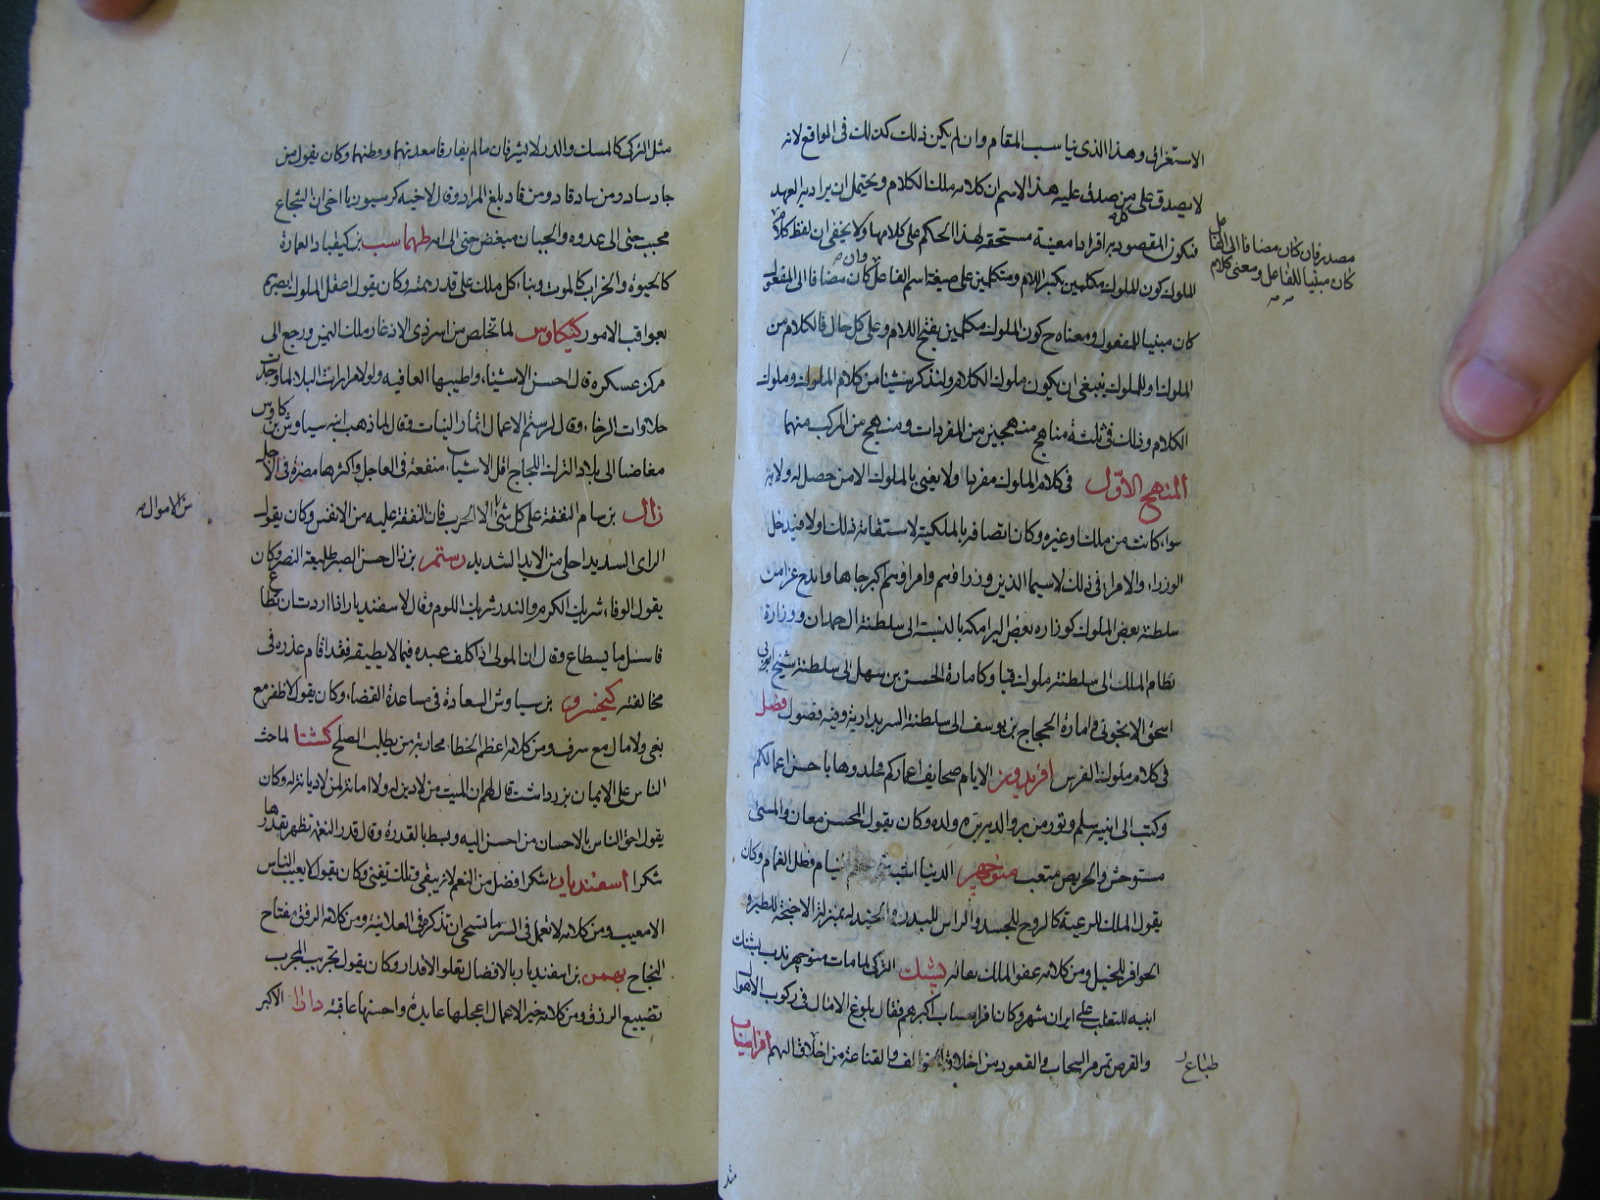 الاستغراق وهذا الذى يناسب المقام وان لم يكن ذلك كذلك فى الواقع لانه
لا يصدق على من صدق عليه هذا الاسم ان كلامه ملك الكلام ويحتمل ان يراد به العهد
فيكون المقصود به افرادا معينة مستحقه لهذا الحكم على كلامها ولا يخفى ان لفظ كلام
الملوك كون الملوك مكلمين بكسر اللام ومتكلمين على صيغة اسم الفاعل وان كان مضافا الى المفعول
مصدر فان كان مضافا الى الفاعل
كان مبنيا للفاعل ومعنى كلام
كان مبنيا للمفعول ومعناه ح كون الملوك مكلمين بفتح اللام وعلى كل حال فالكلام من
الملوك او للملوك ينبغى ان يكون ملوك الكلام ولنذكر شيئا من كلام الملوك وملوك
الكلام وذلك فى ثلثة مناهج منهجين من المفردات ومنهج من المركب منهما
المنهج الاول فى كلام الملوك مفردا ولا يعنى بالملوك الا من حصل له ولاية
سواء كانت من ملك او غيره وكان اتصافه بالملكية لاستفادته ذلك اولا فيدخل
الوزراء والامراء فى ذلك لاسيما الذين وزراؤهم وامراؤهم اكبر جاها وابذخ عزا من
سلطنة بعض الملوك كوزارة بعض البرامكه بالنسبة الى سلطنة ال حمدان ووزارة
نظام الملك الى سلطنة ملوك قبا وكامارة الحسن بن سهل الى سلطنة شيخ ابى
اسحق الانجونى وامارة الحجاج بن يوسف الى سلطنة السربدارية وفيه فصول فصل
فى كلام ملوك الفرس افريدون الايام صحايف اعماركم فخلدوها باحسن اعمالكم
وكتب الى ابنيه سلم وتور من بر والديه بره ولده وكان يقول المحسن معان والمسئ
مستوحش والحريص متعب منوجهر الدنيا اشبه وظل الغمام وكان
يقول الملك للرعية كالروح للجسد والراس للبدن والجند له بمنزلة الاجنحة للطير و
الحوافر للخيل ومن كلامه عفو الملك بقائه پشنك التركى لما مات منوجهر ندب پشنك
ابنيه للتغلب على ايران شهر وكان افراسياب اكبرهم فقال بلوغ الامال فى ركوب الاهوال
والفرص تمر مر السحاب والقعود من اخلاق الخوالف والقناعة من اخلاق البهم افراسياب
طباع
مثل
مثل التركى كالمسك والدر لا يشرفان ما لم يفارقا معدنهما ووطنهما وكان يقول من
جاد ساد ومن ساد قاد ومن قاد بلغ المراد وقال لاخيه كرسيون يا اخى ان الشجاع
محبب حتى الى عدوه والجبان مبغض حتى الى امه طهماسب بن كيقباد العمارة
كالحيوة والخراب كالموت وبناء كل ملك على قدر همته وكان يقول اعقل الملوك ابصرهم
بعواقب الامور كيكاوس لما تخلص من اسر ذى الاذغار ملك اليمن ورجع الى
مركز عسكره قال احسن الاشياء واطيبها العافيه ولولا مرارات البلاء لما وجدت
حلاوات الرخاء وقال لرستم الاعمال اثمار النيات وقال لما ذهب ابنه سياوش بن كاوس
مغاضبا الى بلاد الترك اللجاج اقل الاشياء منفعة فى العاجل واكثرها مضرة فى الاجل
زال بن سام النفقة على كل شئ الا الحرب فان النفقة عليه من الانفس وكان يقول
من الاموال
الراى السديد احلى من الايد الشديد رستم بن زال حسن الصبر طليعة النصر وكان
يقول الوفاء شريك الكرم والغدر شريك اللوم وقال لاسفنديار اذا اردت ان تطاع
فاسئل ما يستطاع وقال ان المولى اذا كلف عبده فيما لا يطيقه فقد اقام عذره فى
مخالفته كيخسرو بن سياوش السعادة فى مساعدة القضاء وكان يقول لا ظفر مع
بغى ولا مال مع سرف ومن كلامه اعظم الخطا محاربة من يطلب الصلح كشتا لما حث
الناس على الايمان بزرداشت قال لهم ان الميت من لا دين له ولا امانة لمن لا ديانة له وكان
يقول احق الناس بالاحسان من احسن اليه وبسط بالقدرة وقال قدر النعمة تظهر بقدرها
شكرا اسفنديار شكرا افضل من النعم لانه يبقى وتلك تفنى وكان يقول لا يعيب الناس
الا معيب ومن كلامه لا تعمل فى السر ما تستحى ان تذكره فى العلانية ومن كلامه الرفق مفتاح
النجاح بهمن بن اسفنديار بالافضال تعلو الاقدار وكان يقول تجريب المجرب
تضييع الرزق ومن كلامه خير الاعمال اعجلها عايدة واحسنها عاقبة دارا الاكبر